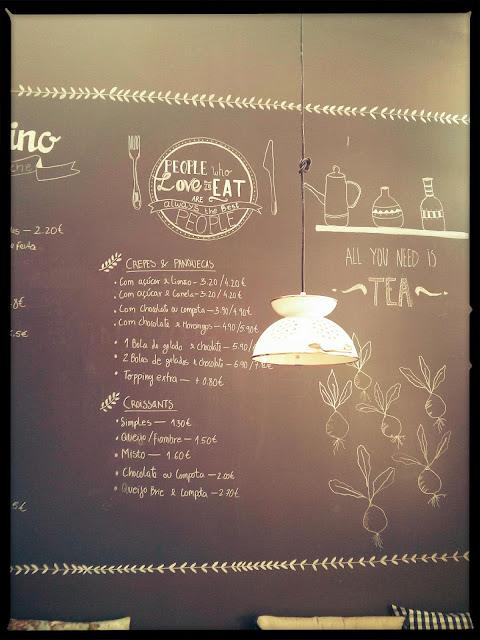 ino
PEOPLE who
Love to EAT
ARE
always the Best
PEOPLE
— 2.20€
ALL YOU NEED IS
TEA
CREPES & PANQUECAS
• Com açúcar e Limão - 3.20/4.20€
• Com açúcar e Canela - 3.20/4.20€
• Com chocolate ou compota - 3.90/4.90€
• Com chocolate e Morangos - 4.90/5.90€
• 1 Bola de gelado e chocolate - 5.90/
• 2 Bolas de gelados e chocolate - 6.90/
• Topping extra — + 0.80€
CROISSANTS
• Simples — 1.30€
• Queijo/Fiambre — 1.50€
• Misto — 1.60€
• Chocolate ou Compota — 2.00€
• Queijo Brie e Compota — 2.70€